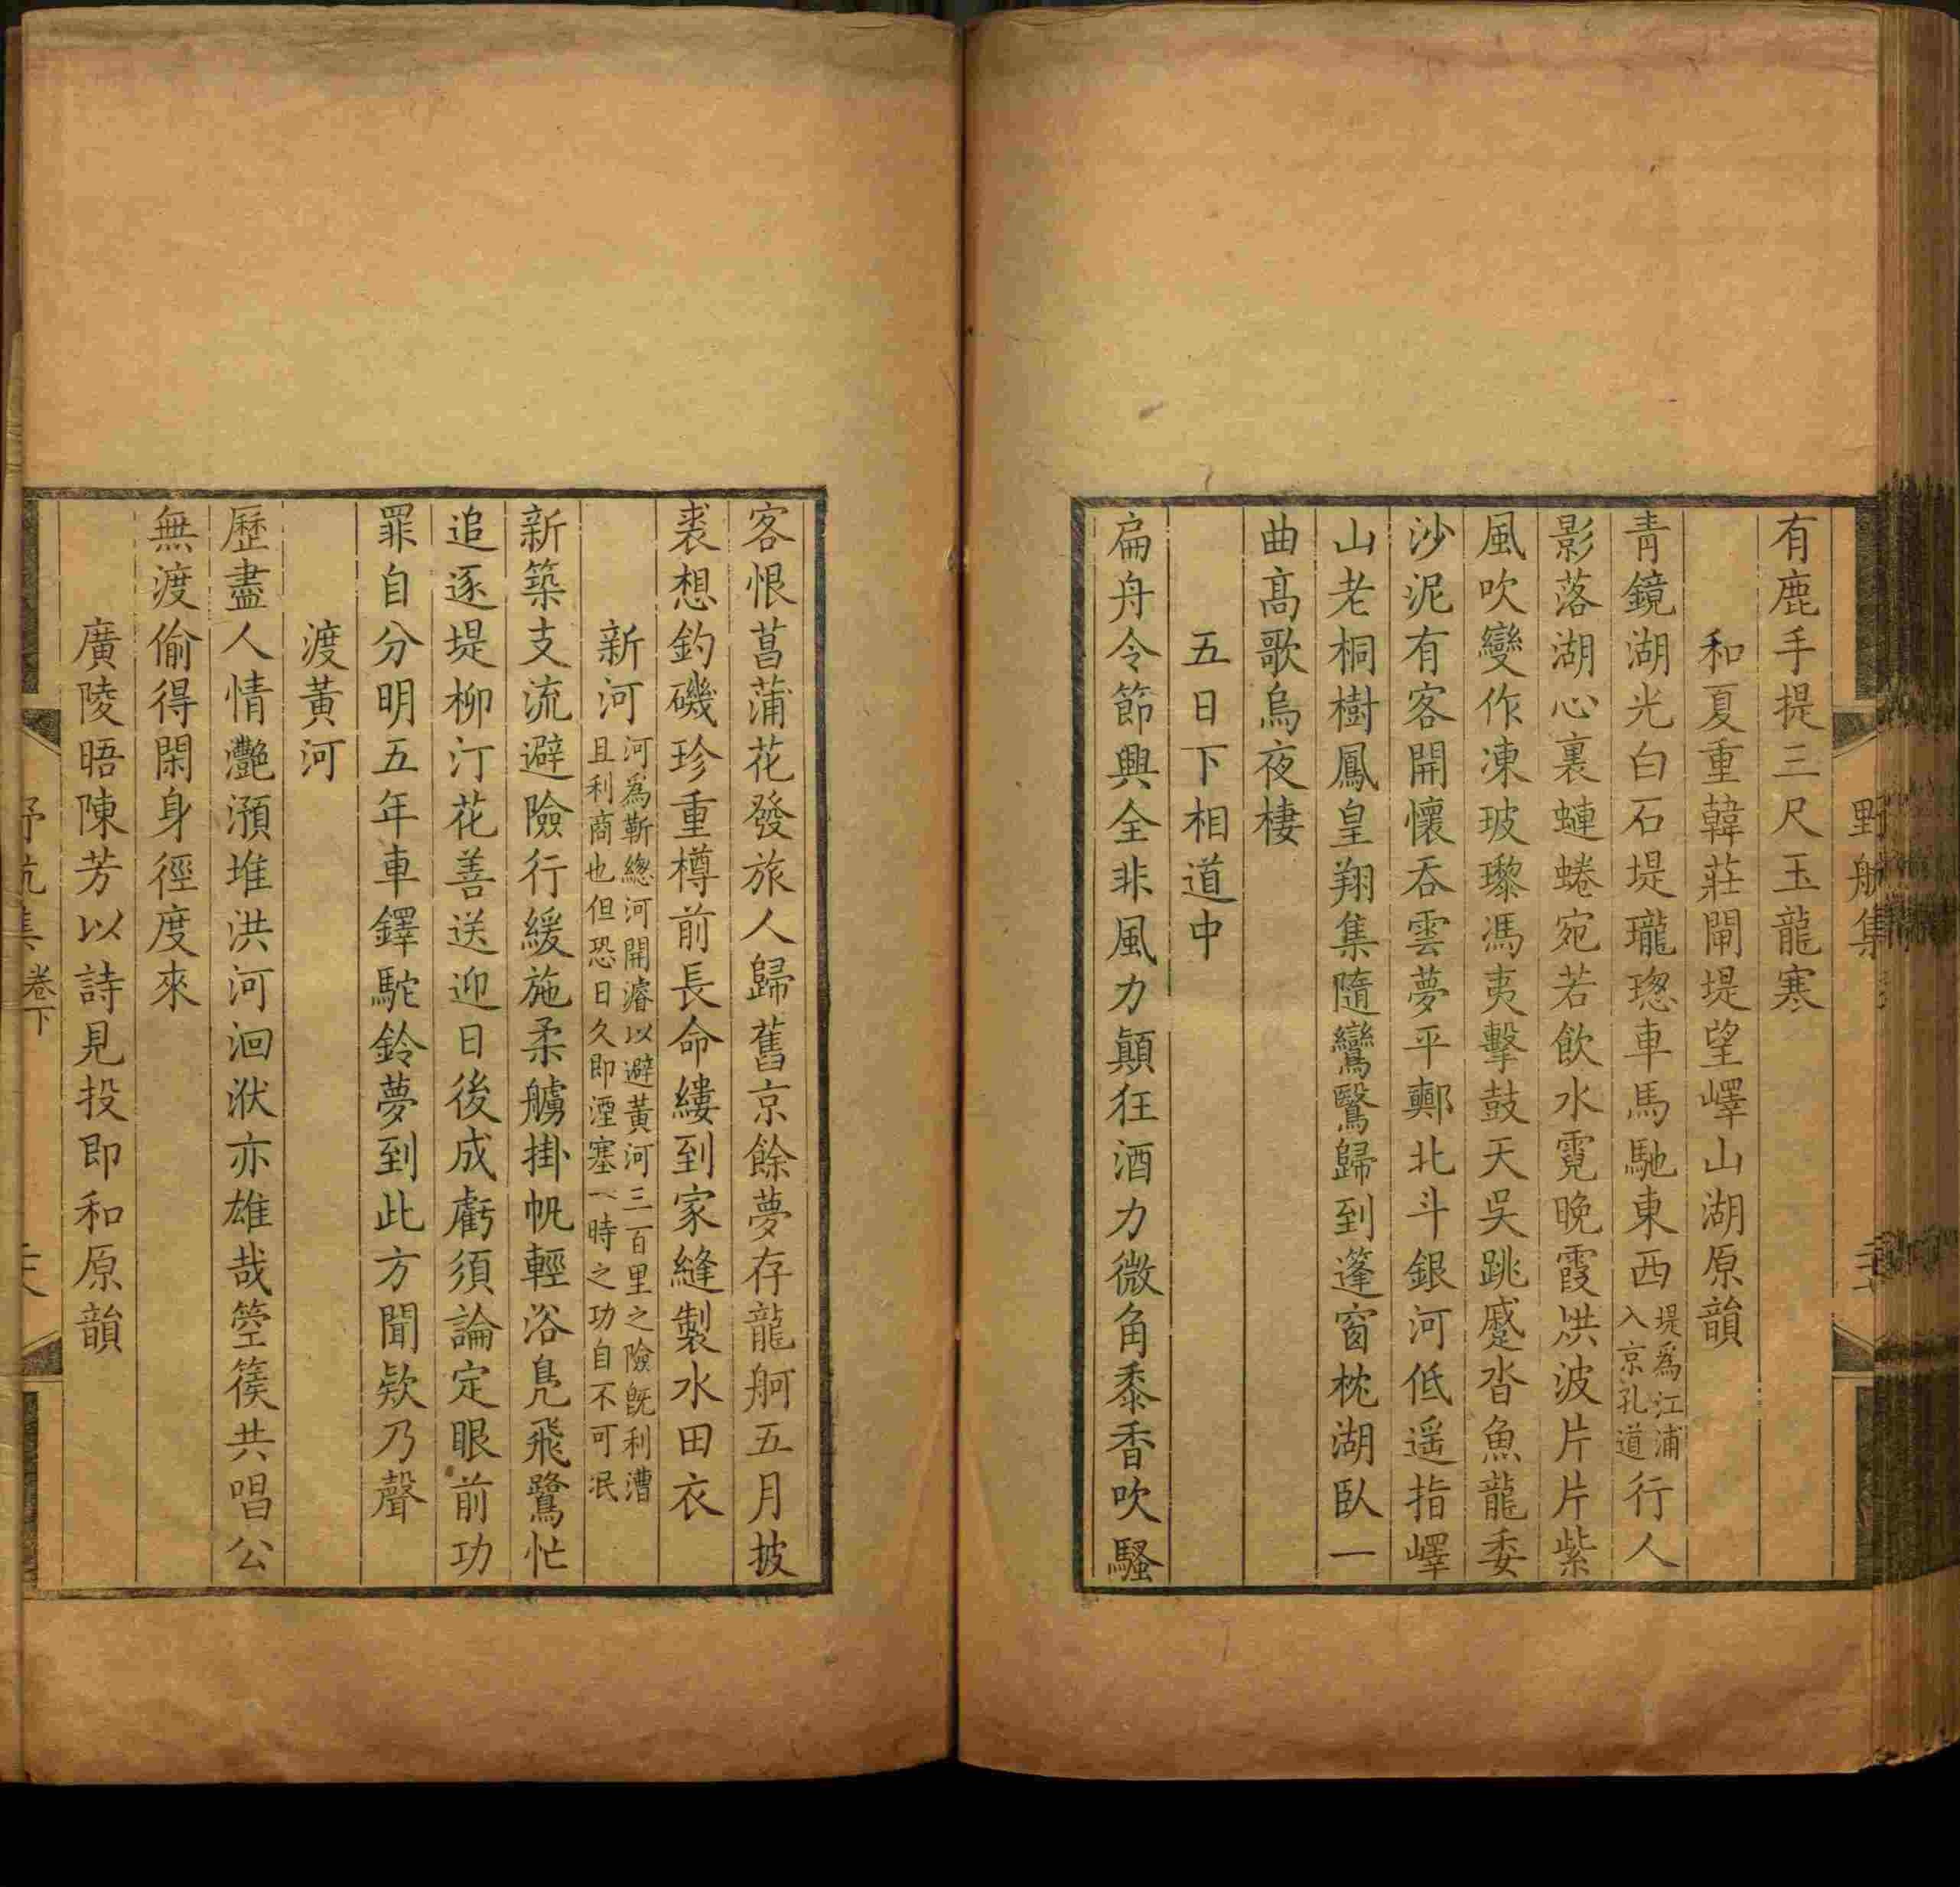 野航集
有鹿手提三尺玉龍寒
和夏重韓莊閘堤望嶧山湖原韻
青鏡湖光白石堤瓏璁車馬馳東西堤爲江浦入京孔道行人
影落湖心裏蜨蜷宛若飲水霓晚霞烘波片片紫
風吹變作凍玻瓈馮夷擊鼓天吳跳蹙沓魚龍委
沙泥有客開懷吞雲夢平鄟北斗銀河低遥指嶧
山老桐樹鳳皇翔集隨鸞鷖歸到篷窗枕湖臥一
曲高歌烏夜棲
五日下相道中
扁舟令節興全非風力顛狂酒力微角黍香吹騷
客恨菖蒲花發旅人歸舊京餘夢存龍舸五月披
裘想釣磯珍重樽前長命縷到家縫製水田衣
新河河爲靳總河開濬以避黃河三百里之險旣利漕且利商也但恐日久即湮塞一時之功自不可泯
新築支流避險行緩施柔艣掛帆輕浴鳧飛鷺忙
追逐堤柳汀花善送迎日後成虧須論定眼前功
罪自分明五年車鐸駝鈴夢到此方聞欸乃聲
渡黃河
歷盡人情灩澦堆洪河洄洑亦雄哉箜篌共唱公
無渡偷得閑身徑度來
廣陵晤陳芳以詩見投即和原韻
卷下